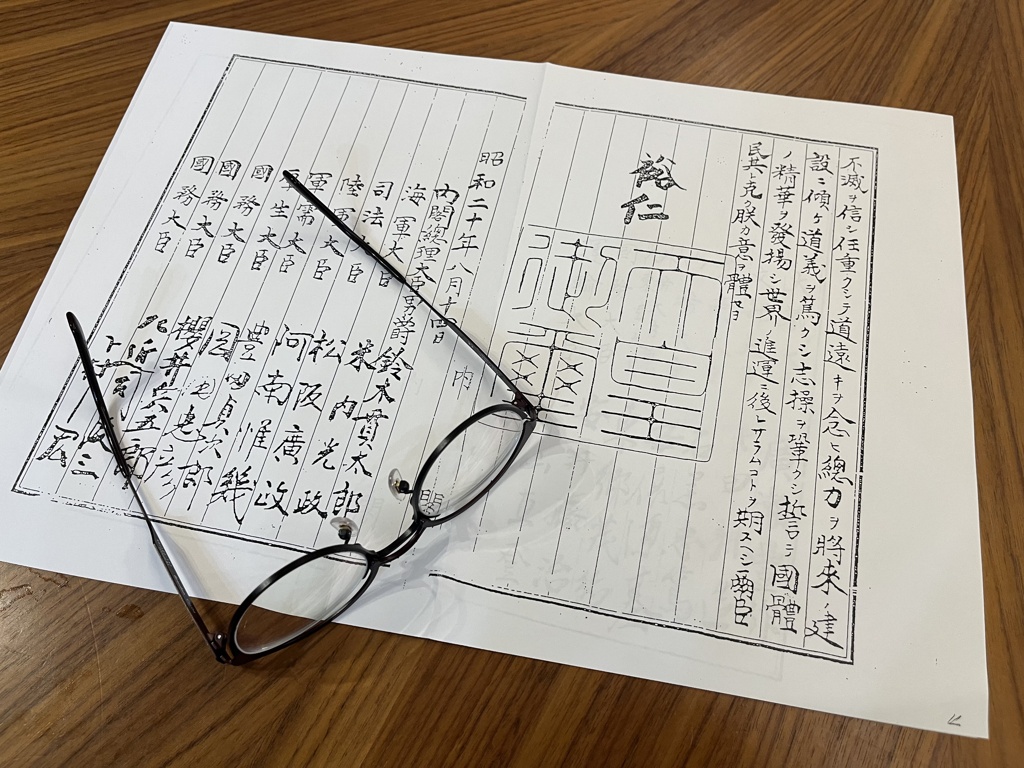 不滅ヲ信シ任重クシテ道遠キヲ念ヒ總力ヲ將來ノ建
設ニ傾ケ道義ヲ篤クシ志操ヲ鞏クシ誓テ國體
ノ精華ヲ發揚シ世界ノ進運ニ後レサラムコトヲ期スヘシ爾臣
民其レ克ク朕カ意ヲ體セヨ
裕仁
天皇
御璽
內
閣
昭和二十年八月十四日
內閣總理大臣男爵 鈴木貫太郎
海軍大臣 米內光政
司法大臣 松阪廣政
陸軍大臣 阿南惟幾
軍需大臣 豊田貞次郎
生大臣 岡田忠彦
國務大臣 櫻井兵五郎
國務大臣 近 三
國務大臣 下